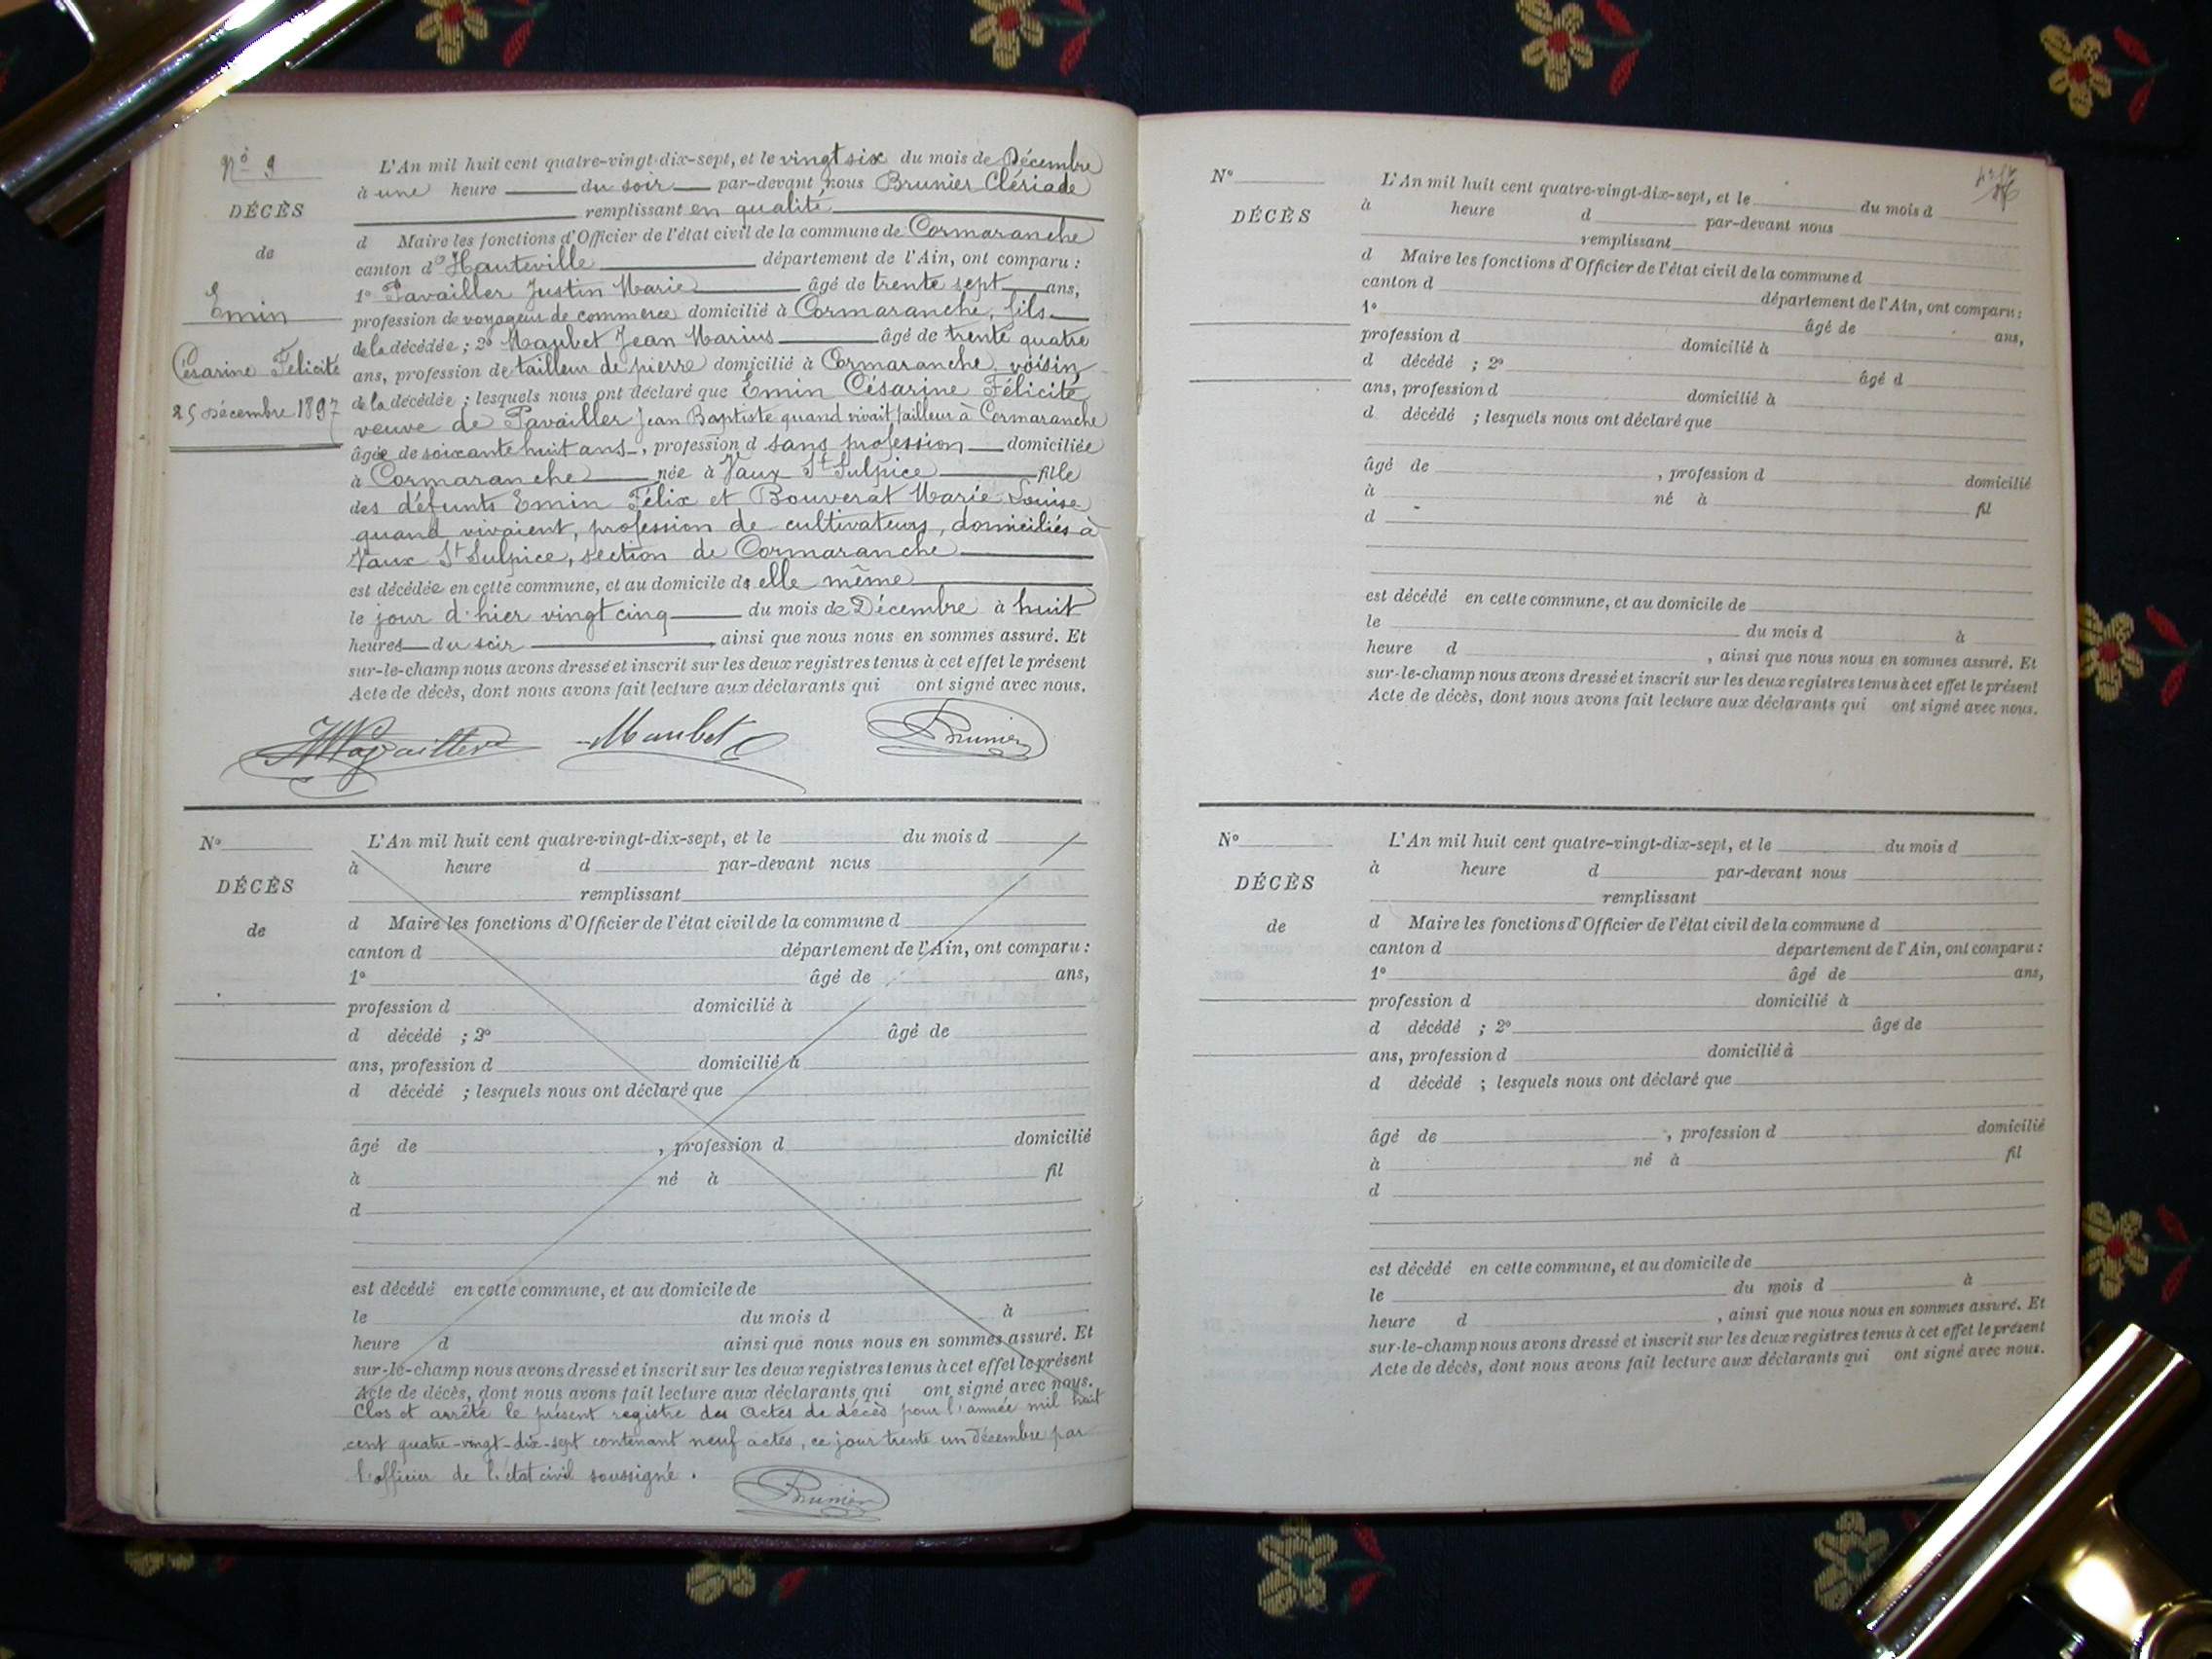 No 9
DÉCÈS
de
Emin
Césarine Félicité
25 Décembre 1897
L'An mil huit cent quatre-vingt-dix-sept, et le vingt six du mois de Décembre
à une heure du soir par-devant nous Brunier Clériade
remplissant en qualité
d Maire les fonctions d'Officier de l'état civil de la commune de Cormaranche
canton d'Hauteville département de l'Ain, ont comparu :
1o Pavailler Justin Marie âgé de trente sept ans,
profession de voyageur de commerce domicilié à Cormaranche, fils
de la décédée ; 2o Maubet Jean Marius âgé de trente quatre
ans, profession de tailleur de pierre domicilié à Cormaranche, voisin
de la décédée ; lesquels nous ont déclaré que Emin Césarine Félicité
veuve de Pavailler Jean Baptiste quand vivait tailleur à Cormaranche
âgée de soixante huit ans, profession d sans profession domiciliée
à Cormaranche née à Vaux St Sulpice fille
des défunts Emin Félix et Bouverat Marie Louise
quand vivaient, profession de cultivateurs, domiciliés à
Vaux St Sulpice, section de Cormaranche
est décédée en cette commune, et au domicile d'elle même
le jour d'hier vingt cinq du mois de Décembre à huit
heures du soir, ainsi que nous nous en sommes assuré. Et
sur-le-champ nous avons dressé et inscrit sur les deux registres tenus à cet effet le présent
Acte de décès, dont nous avons fait lecture aux déclarants qui ont signé avec nous.
JMPavailler Maubet Brunier
No
DÉCÈS
de
L'An mil huit cent quatre-vingt-dix-sept, et le du mois d
à heure d par-devant nous
remplissant
d Maire les fonctions d'Officier de l'état civil de la commune d
canton d département de l'Ain, ont comparu :
1o âgé de ans,
profession d domicilié à
d décédé ; 2o âgé de
ans, profession d domicilié à
d décédé ; lesquels nous ont déclaré que
âgé de , profession d domicilié
à né à fil
d
est décédé en cette commune, et au domicile de
le du mois d à
heure d ainsi que nous nous en sommes assuré. Et
sur-le-champ nous avons dressé et inscrit sur les deux registres tenus à cet effet le présent
Acte de décès, dont nous avons fait lecture aux déclarants qui ont signé avec nous.
Clos et arrêté le présent registre des actes de décès pour l'année mil huit
cent quatre-vingt-dix-sept contenant neuf actes, ce jour trente un Décembre par
l'officier de l'état civil soussigné.
Brunier
No
DÉCÈS
L'An mil huit cent quatre-vingt-dix-sept, et le du mois d
à heure d par-devant nous
remplissant
d Maire les fonctions d'Officier de l'état civil de la commune d
canton d département de l'Ain, ont comparu :
1o âgé de ans,
profession d domicilié à
d décédé ; 2o âgé d
ans, profession d domicilié à
d décédé ; lesquels nous ont déclaré que
âgé de , profession d domicilié
à né à fil
d
est décédé en cette commune, et au domicile de
le du mois d à
heure d , ainsi que nous nous en sommes assuré. Et
sur-le-champ nous avons dressé et inscrit sur les deux registres tenus à cet effet le présent
Acte de décès, dont nous avons fait lecture aux déclarants qui ont signé avec nous.
No
DÉCÈS
de
L'An mil huit cent quatre-vingt-dix-sept, et le du mois d
à heure d par-devant nous
remplissant
d Maire les fonctions d'Officier de l'état civil de la commune d
canton d département de l'Ain, ont comparu :
1o âgé de ans,
profession d domicilié à
d décédé ; 2o âgé de
ans, profession d domicilié à
d décédé ; lesquels nous ont déclaré que
âgé de , profession d domicilié
à né à fil
d
est décédé en cette commune, et au domicile de
le du mois d à
heure d , ainsi que nous nous en sommes assuré. Et
sur-le-champ nous avons dressé et inscrit sur les deux registres tenus à cet effet le présent
Acte de décès, dont nous avons fait lecture aux déclarants qui ont signé avec nous.